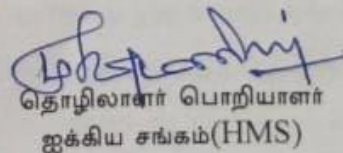 தொழிலாளர் பொறியாளர்
ஐக்கிய சங்கம்(HMS)